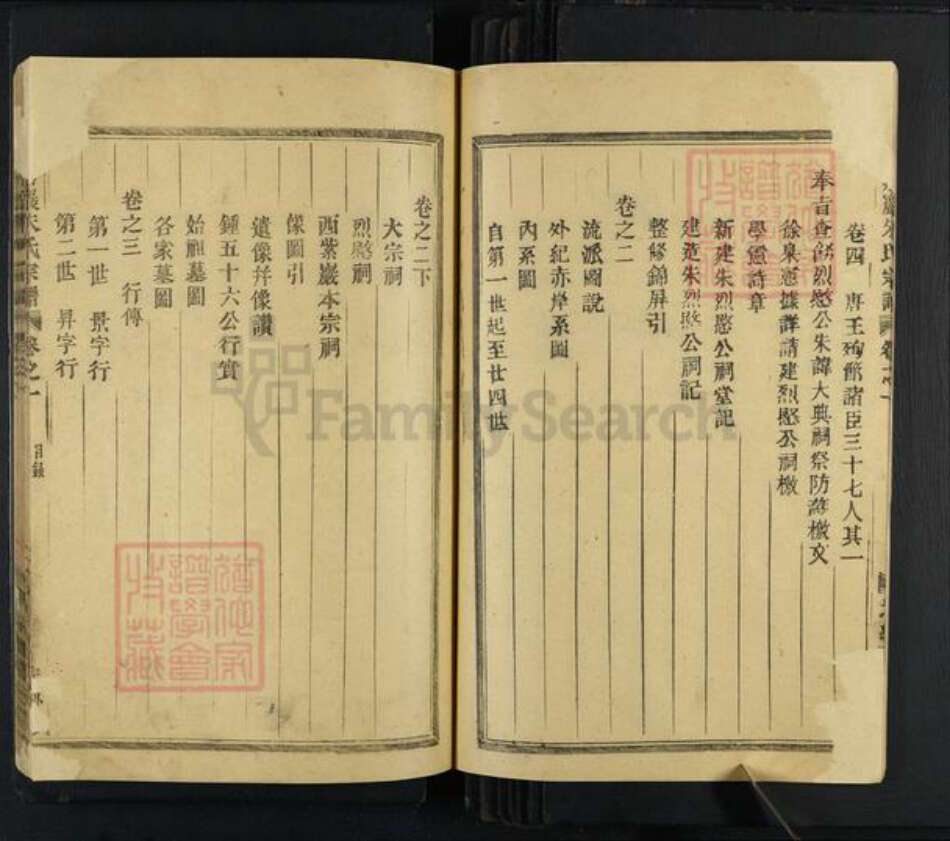 卷四 唐王殉節諸臣三十七人其一
奉旨查卹烈愍公朱諱大典祠祭防護檄文
徐臬憲據詳請建烈愍公祠檄
學憲詩章
新建朱烈愍公祠堂記
建造朱烈愍公祠記
整修錦屏引
卷之二
流派圖說
外紀赤岸系圖
內系圖
自第一世起至廿四世
卷之二下
大宗祠
烈愍祠
西紫巖本宗祠
像圖引
遺像并像讚
鍾五十六公行實
始祖墓圖
各家墓圖
卷之三 行傳
第一世 景字行
第二世 昇字行
朱氏宗譜 卷之一
目錄
FamilySearch